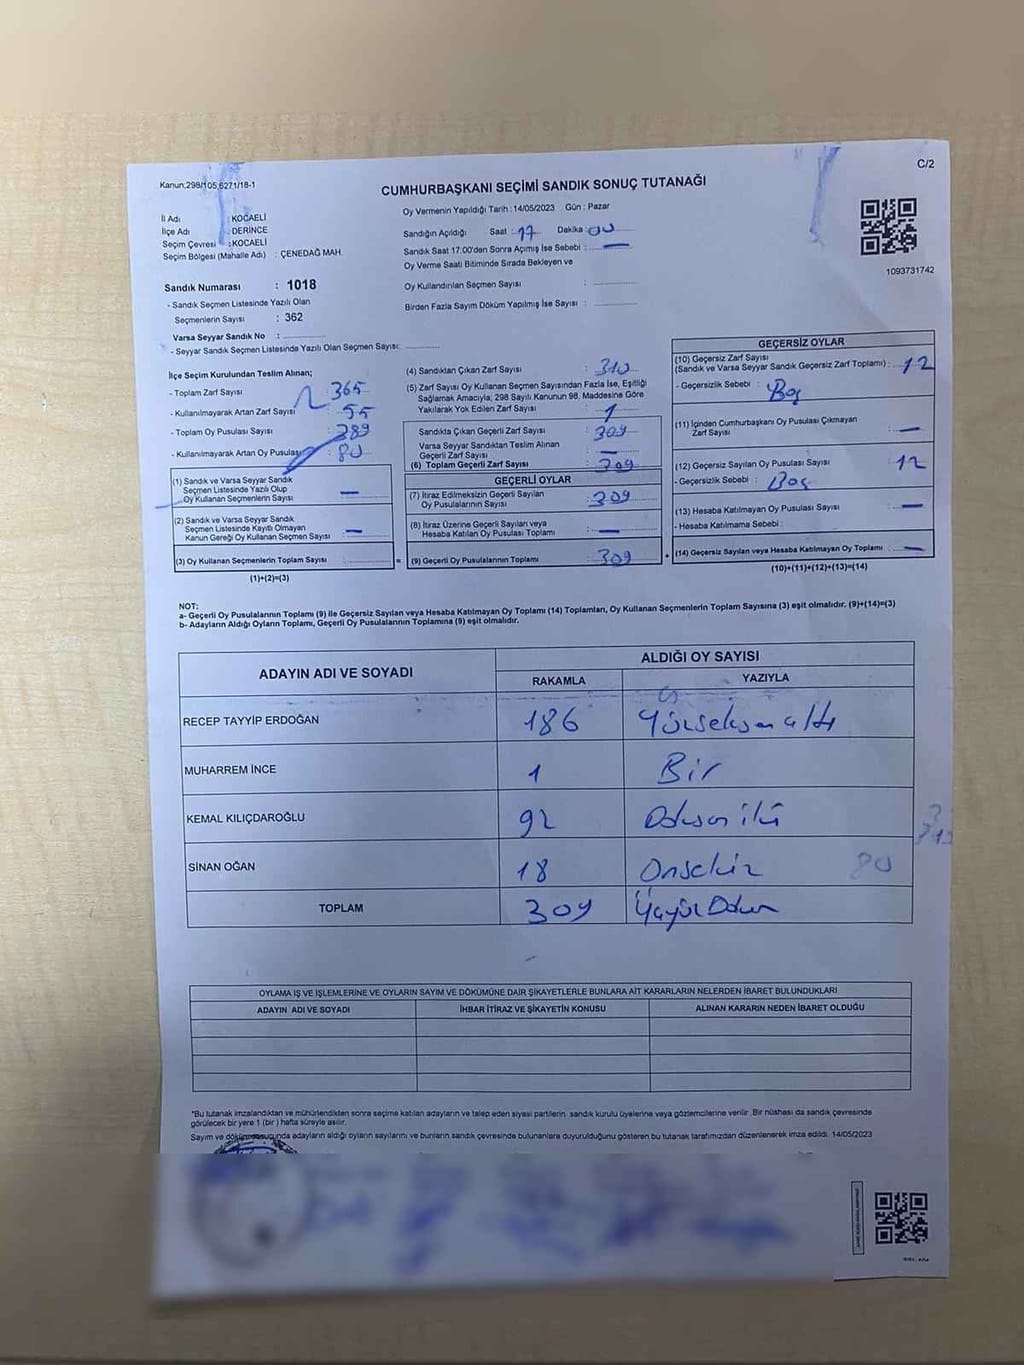 C/2
Kanun:298/105,6271/18-1
CUMHURBAŞKANI SEÇİMİ SANDIK SONUÇ TUTANAĞI
Oy Vermenin Yapıldığı Tarih :14/05/2023 Gün : Pazar
İl Adı : KOCAELİ
İlçe Adı : DERİNCE
Seçim Çevresi : KOCAELİ
Seçim Bölgesi (Mahalle Adı) : ÇENEDAĞ MAH.
Sandığın Açıldığı Saat : 17 Dakika : 00
Sandık Saat 17:00'den Sonra Açımış İse Sebebi : —
Oy Verme Saati Bitiminde Sırada Bekleyen ve
Oy Kullandırılan Seçmen Sayısı :
Birden Fazla Sayım Döküm Yapılmış İse Sayısı :
1093731742
Sandık Numarası : 1018
- Sandık Seçmen Listesinde Yazılı Olan
Seçmenlerin Sayısı : 362
Varsa Seyyar Sandık No :
- Seyyar Sandık Seçmen Listesinde Yazılı Olan Seçmen Sayısı:
İlçe Seçim Kurulundan Teslim Alınan;
- Toplam Zarf Sayısı : 365
- Kullanılmayarak Artan Zarf Sayısı : 55
- Toplam Oy Pusulası Sayısı : 389
- Kullanılmayarak Artan Oy Pusulası : 80
(1) Sandık ve Varsa Seyyar Sandık
Seçmen Listesinde Yazılı Olup
Oy Kullanan Seçmenlerin Sayısı —
(2) Sandık ve Varsa Seyyar Sandık
Seçmen Listesinde Kayıtlı Olmayan
Kanun Gereği Oy Kullanan Seçmen Sayısı —
(3) Oy Kullanan Seçmenlerin Toplam Sayısı =
(1)+(2)=(3)
(4) Sandıktan Çıkan Zarf Sayısı : 310
(5) Zarf Sayısı Oy Kullanan Seçmen Sayısından Fazla İse, Eşitliği
Sağlamak Amacıyla; 298 Sayılı Kanunun 98. Maddesine Göre
Yakılarak Yok Edilen Zarf Sayısı : 1
Sandıkta Çıkan Geçerli Zarf Sayısı : 309
Varsa Seyyar Sandıktan Teslim Alınan
Geçerli Zarf Sayısı : —
(6) Toplam Geçerli Zarf Sayısı : 309
GEÇERLİ OYLAR
(7) İtiraz Edilmeksizin Geçerli Sayılan
Oy Pusulalarının Sayısı : 309
(8) İtiraz Üzerine Geçerli Sayılan veya
Hesaba Katılan Oy Pusulası Toplamı : —
(9) Geçerli Oy Pusulalarının Toplamı : 309 +
GEÇERSİZ OYLAR
(10) Geçersiz Zarf Sayısı
(Sandık ve Varsa Seyyar Sandık Geçersiz Zarf Toplamı) : 12
- Geçersizlik Sebebi : Boş
(11) İçinden Cumhurbaşkanı Oy Pusulası Çıkmayan
Zarf Sayısı : —
(12) Geçersiz Sayılan Oy Pusulası Sayısı : 12
- Geçersizlik Sebebi : Boş
(13) Hesaba Katılmayan Oy Pusulası Sayısı : —
- Hesaba Katılmama Sebebi :
(14) Geçersiz Sayılan veya Hesaba Katılmayan Oy Toplamı : —
(10)+(11)+(12)+(13)=(14)
NOT:
a- Geçerli Oy Pusulalarının Toplamı (9) ile Geçersiz Sayılan veya Hesaba Katılmayan Oy Toplamı (14) Toplamları, Oy Kullanan Seçmenlerin Toplam Sayısına (3) eşit olmalıdır. (9)+(14)=(3)
b- Adayların Aldığı Oyların Toplamı, Geçerli Oy Pusulalarının Toplamına (9) eşit olmalıdır.
ADAYIN ADI VE SOYADI ALDIĞI OY SAYISI
RAKAMLA YAZIYLA
RECEP TAYYİP ERDOĞAN 186 Yüzseksen altı
MUHARREM İNCE 1 Bir
KEMAL KILIÇDAROĞLU 92 Doksan iki
SİNAN OĞAN 18 Onsekiz 80
TOPLAM 309 Üçyüz Dokuz
OYLAMA İŞ VE İŞLEMLERİNE VE OYLARIN SAYIM VE DÖKÜMÜNE DAİR ŞİKAYETLERLE BUNLARA AİT KARARLARIN NELERDEN İBARET BULUNDUKLARI
ADAYIN ADI VE SOYADI İHBAR İTİRAZ VE ŞİKAYETİN KONUSU ALINAN KARARIN NEDEN İBARET OLDUĞU
*Bu tutanak imzalandıktan ve mühürlendikten sonra seçime katılan adayların ve talep eden siyasi partilerin sandık kurulu üyelerine veya gözlemcilerine verilir. Bir nüshası da sandık çevresinde
görülecek bir yere 1 (bir) hafta süreyle asılır.
Sayım ve dökümü sonucunda adayların aldığı oyların sayılarını ve bunların sandık çevresinde bulunanlara duyurulduğunu gösteren bu tutanak tarafımızdan düzenlenerek imza edildi. 14/05/2023